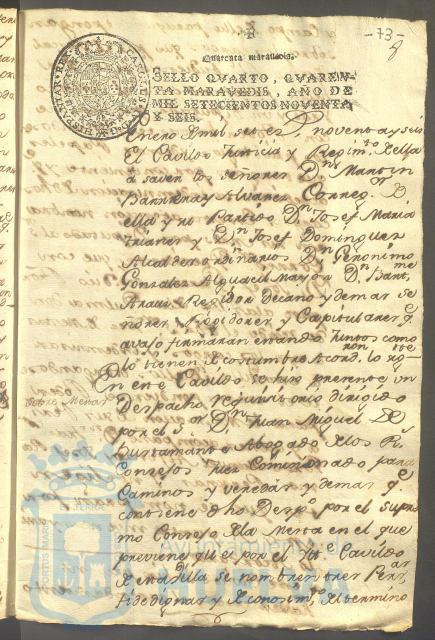 -73-
Quarenta maravedis.
SELLO QVARTO, QVAREN-
TA MARAVEDIS, AÑO DE
MIL SETECIENTOS NOVENTA
Y SEIS.
CAROLUS HISPANIAR. REX
Enero mil set noventa y seis
El Cavildo Justicia y Regim.to
a saver los señores D.n Martin
Barrrera y Alvarez Correg.or
ella y su Partido D.n Josef Maria
y D.n Josef Dominguez
Alcaldes ordinarios D.n Geronimo
Gonzalez Alguacil mayor D.n Bart.me
Regidor Decano y demas se
ñores Regidores y Capitulares q.e
avajo firmaran estando juntos como
lo tienen costumbre Acord.ron lo sig.te
En este Cavildo se hizo presente un
Sobre Mestas
Despacho requisitorio dirigido
por el S.or D.n Juan Miguel
Bustamante Abogado los R.s
Consejos Juez Comisionado para
Caminos y veredas y demas q.e
contiene dho Desp.o por el supre
mo Consejo la Mesta en el que
previene que por el Cavildo
se nombren tres Per.s
fidedignas y conosim.to termino